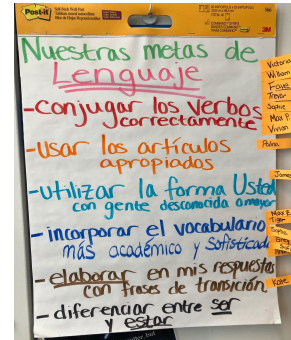 Post-it
Nuestras metas de
Lenguaje
-conjugar los verbos
correctamente
-usar los artículos
apropiados
-utilizar la forma Usted
con gente desconocida o mayor
- incorporar el vocabulario
más académico y sofisticado
- elaborar en mis respuestas
con frases de transición
- diferenciar entre ser
y estar
566
3M
Victoria
William
Trevor
Sophie
Max P.
Vivian
Polina
James
Max Z
Tiger
Kate